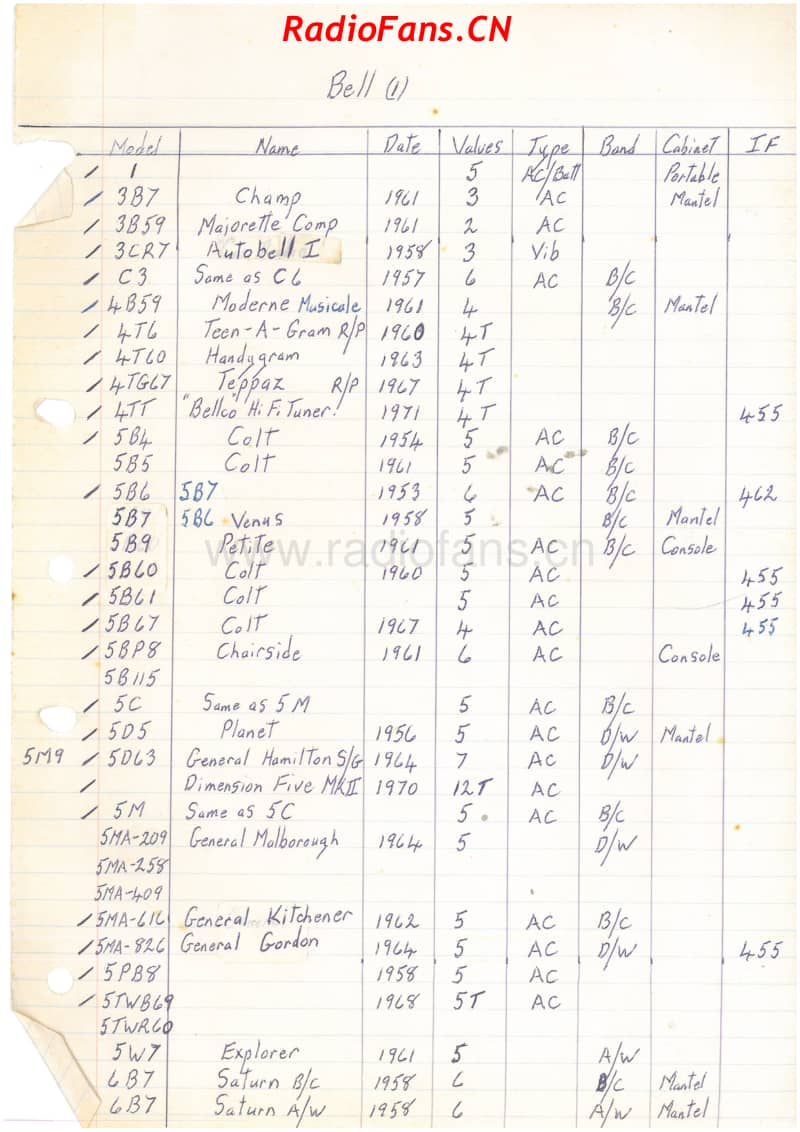 RadioFans.CN
Bell (1)
Model Name Date Values Type Band Cabinet IF
/ 1 5 AC/Batt Portable
/ 3B7 Champ 1961 3 AC Mantel
/ 3B59 Majorette Comp 1961 2 AC
/ 3CR7 Autobell I 1958 3 Vib
/ C3 Same as C6 1957 6 AC B/C
/ 4B59 Moderne Musicale 1961 4 B/C Mantel
/ 4T6 Teen-A-Gram R/P 1960 4T
/ 4T60 Handygram 1963 4T
/ 4TG67 Teppaz R/P 1967 4T
/ 4TT "Bellco" Hi Fi Tuner! 1971 4T 455
/ 5B4 Colt 1954 5 AC B/C
5B5 Colt 1961 5 AC B/C
/ 5B6 5B7 1953 6 AC B/C 462
5B7 5B6 Venus 1958 5 B/C Mantel
5B9 Petite 1961 5 AC B/C Console
www.radiofans.cn
/ 5B60 Colt 1960 5 AC 455
/ 5B61 Colt 5 AC 455
/ 5B67 Colt 1967 4 AC 455
/ 5BP8 Chairside 1961 6 AC Console
5B115
/ 5C Same as 5M 5 AC B/C
/ 5D5 Planet 1956 5 AC D/W Mantel
5M9 / 5D63 General Hamilton S/G 1964 7 AC D/W
/ Dimension Five MKII 1970 12T AC
/ 5M Same as 5C 5 AC B/C
5MA-209 General Malborough 1964 5 D/W
5MA-258
5MA-409
/ 5MA-616 General Kitchener 1962 5 AC B/C
/ 5MA-826 General Gordon 1964 5 AC D/W 455
/ 5PB8 1958 5 AC
/ 5TWB69 1968 5T AC
5TWR60
5W7 Explorer 1961 5 A/W
6B7 Saturn B/C 1958 6 B/C Mantel
6B7 Saturn A/W 1958 6 A/W Mantel